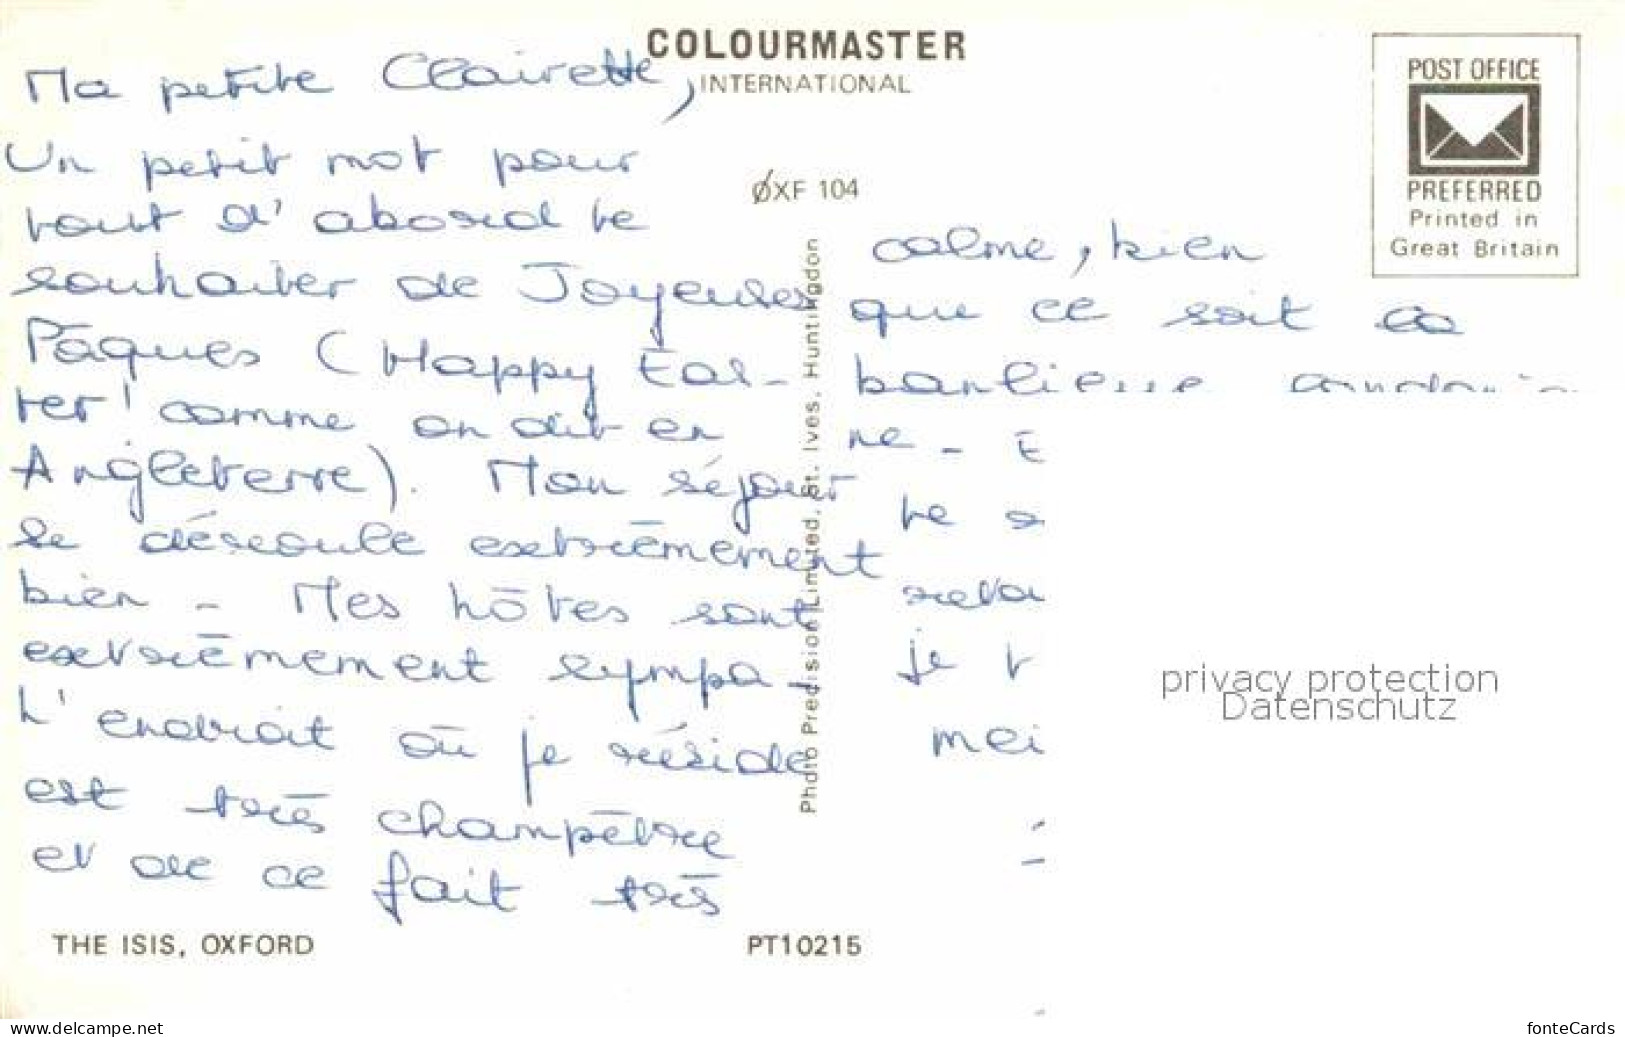 COLOURMASTER
INTERNATIONAL
POST OFFICE
PREFERRED
Printed in
Great Britain
ØXF 104
Ma petite Clairette,
Un petit mot pour
tout d'abord te
souhaiter de Joyeuses
Pâques (Happy Eas-
ter! comme on dit en
Angleterre). Mon séjour
se déroule extrêmement
bien - Mes hôtes sont
extrêmement sympa -
L'endroit où je réside
est très champêtre
et de ce fait très
calme, bien
que ce soit la
banlieue
ne - E
te
je
mei
Photo Precision Limited, St. Ives, Huntingdon
privacy protection
Datenschutz
THE ISIS, OXFORD
PT10215
www.delcampe.net
fonteCards